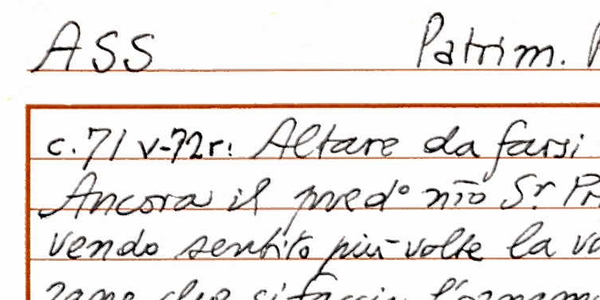 ASS Patrim.
c. 71 v-72r: Altare da farsi
Ancora il pred° nr̃o S.r
vendo sentito più volte la
che si faccia l'ornam